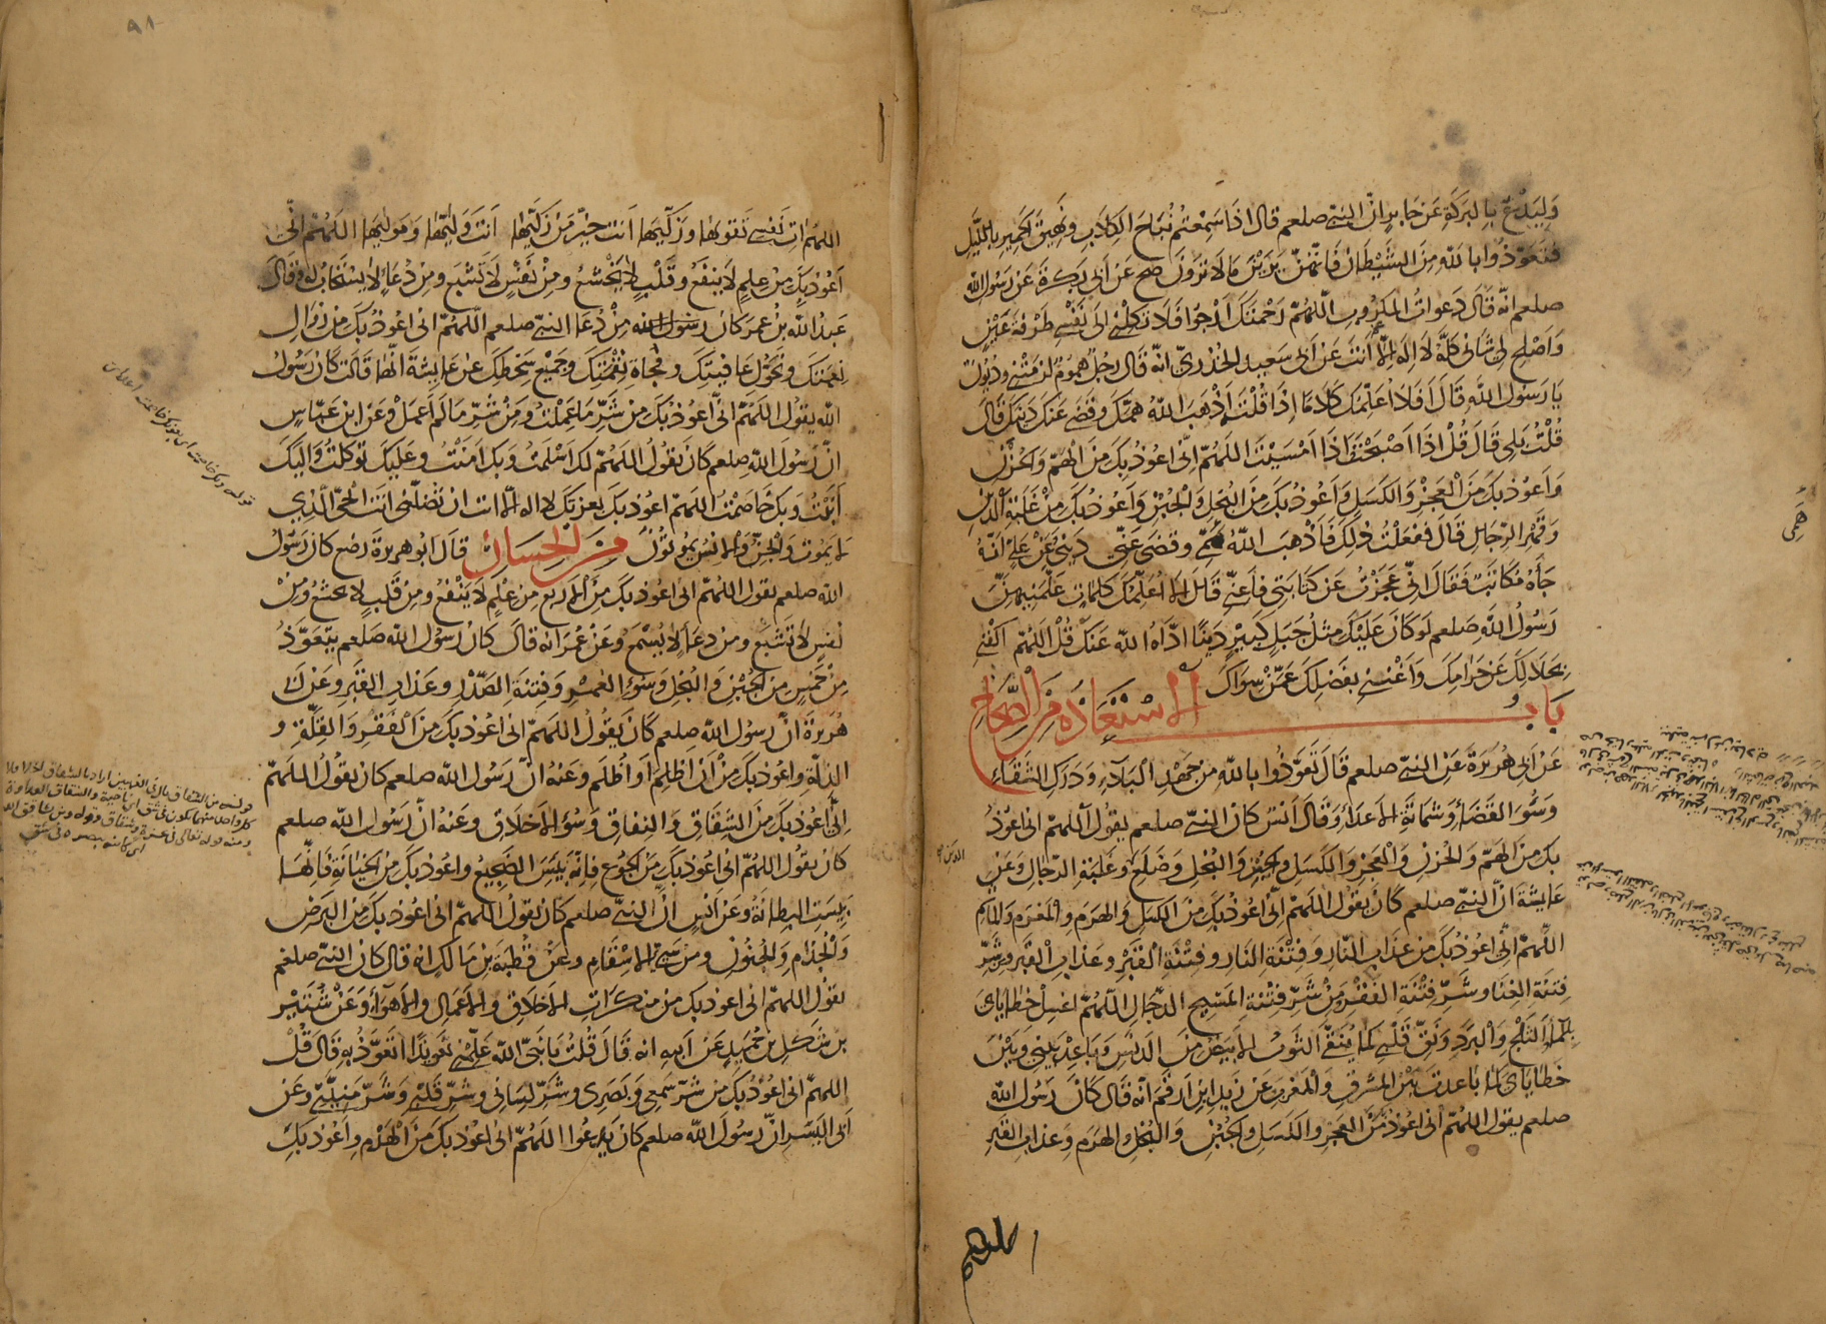 وَلْيَدْعُ بِالبَرَكَةِ عَنْ جَابِرٍ انّ النبىّ صلعم قال اذا سَمِعْتُمْ نُبَاحَ الكِلَابِ ونَهِيقَ الحَمِيرِ باللَّيلِ
فتَعَوَّذُوا بالله مِنَ الشَّيْطَانِ فَانّهنّ يَرَيْنَ مَا لَا تَرَوْنَ صح عَنْ أَبِى بَكرَةَ عَنْ رَسُول الله
صلعم انّه قَالَ دَعواتُ المَكْرُوبِ اللّهُمّ رَحْمَتَكَ اَرْجُوا فَلَا تَكِلْنِى الى نَفْسِى طَرْفَةَ عَيْنٍ
وَاَصْلِح لِى شَانِى كُلَّهُ لا اِلَهَ اِلّا اَنتَ عَنْ اَبِى سَعِيد الخُدْرِىّ انّه قَالَ رَجُلٌ هُمُومٌ لزِمَتْنِى ودُيُونٌ
يا رَسُولَ الله قَالَ اَفَلَا اُعَلِّمُكَ كَلَامًا إِذَا قُلْتَهُ اَذْهَبَ اللّهُ هَمَّكَ وقَضَى عَنْكَ دَيْنَكَ قَالَ
قُلْتُ بَلى قَالَ قُلْ اذَا اَصْبَحْتَ وَاِذَا اَمْسَيْتَ اللهُمّ اِنِّى اعُوذُ بِكَ مِنَ الهَمِّ وَالحُزْنِ
وَاَعُوذُ بِكَ مِنَ العَجْزِ وَالكَسَلِ وَاَعُوذُ بكَ مِنَ البُخلِ وَالْجُبْنِ وَاَعُوذُ بكَ مِنْ غَلَبَةِ الدَّيْنِ
وَقَهْرِ الرِّجَالِ قَالَ فَفَعَلْتُ ذلِكَ فَاَذْهَبَ اللّهُ هَمِّى وقَضَى عَنِّى دَيْنِى عَنْ عَلِىّ انّهُ
جَاءهُ مُكاتَبٌ فَقَالَ اِنِّى عَجَزْتُ عَن كتَابَتِى فاَعِنِّى قَالَ اَلَا اُعَلِّمُكَ كَلِمَاتٍ عَلَّمَنِيهِنَّ
رَسُولُ اللهِ صلعم لَو كَانَ عَلَيْكَ مِثلُ جَبَلٍ كَبِيرٍ دَيْنًا ادّاهُ اللّه عَنكَ قُلْ اللهُمّ اكْفِنِى
بحَلَالِكَ عَنْ حَرَامِكَ وَاَغْنِنِى بِفَضْلِكَ عَمَّنْ سِوَاكَ
بَابُ الاسْتِعَاذَة مِنَ الصِّحَاحِ
عَنْ اَبِى هُرَيْرَةَ عَنِ النبىّ صلعم قَالَ تَعَوَّذُوا بالله مِن جَهْدِ البَلَاءِ وَدَرَكِ الشَّقَاءِ
وَسُوءِ القَضَاءِ وشَمَاتَةِ الاَعدَاءِ وَقَالَ اَنسٌ كَانَ النبىّ صلعم يقُول اللهُمّ انى اعُوذُ
بكَ مِنَ الهَمّ والحُزنِ وَالْعَجْزِ وَالكَسَلِ والجُبْنِ وَالبُخْلِ وَضَلَعِ وغَلَبَةِ الرِّجالِ وعَنْ
الدين
عَايشَةَ انّ النبىّ صلعم كانَ يقُولُ اللهُمّ انِّى اَعُوذُ بكَ مِنَ الكَسَلِ والهَرَمِ والمَغْرَمِ والمَاثَمِ
اللّهُمّ انِّى اَعُوذُ بكَ مِن عَذَابِ النّارِ وَفِتْنَةِ النَارِ وفِتْنَةِ القَبْرِ وعَذَابِ القَبرِ ومِن شَرِّ
فِتنَةِ الغِنَا وشَرِّ فِتْنَةِ الفَقْرِ ومِنْ شَرِّ فِتْنَةِ المَسِيحِ الدَّجّالِ اللهُمّ اغسِلْ خَطَايَاىَ
بِمَاءِ الثَّلْجِ وَالْبَرَدِ ونَقِّ قَلْبِى كمَا يُنَقَّى الثَّوبُ الاَبيَضُ مِنَ الدَنَسِ وَبَاعِدْ بَيْنِى وَبَيْنَ
خطَايَاىَ كمَا باعدتَ بَيْنَ المَشرِقِ والمَغْرِبِ عَن زَيد ابنِ اَرقَمَ انّه قَالَ كَانَ رَسُولُ الله
صلعم يقول اللهُمّ انى اعُوذ بكَ مِنَ العَجزِ والكَسَلِ والجُبْنِ والبُخْلِ والهَرَمِ وعَذابِ القَبرِ
اللهم
٩٨
اللهمّ اٰتِ نَفسِى تَقوٰىهَا وزَكّيهَا اَنتَ خيرٌ مَن زَكَّيهَا اَنتَ وَليُّهَا وَمَوليهَا اللهُمّ انِّى
اَعُوذُ بِكَ مِنْ عِلمٍ لَا يَنفَعُ وقَلْبٍ لَا يَخْشَعُ ومِنْ نَفْسٍ لَا تَشْبَعُ ومِنْ دُعَاءٍ لَا يُستَجَابُ له وقَالَ
عَبدُ اللّه بنُ عمَرَ كَانَ مِنْ دُعَاءِ النبىّ صلعم اللهُمّ انى اعُوذُ بكَ مِن زَوالِ
نِعمَتِكَ وتَحَوُّلِ عَافِيَتِكَ وفُجَاءةِ نِقْمَتِكَ وجَمِيْعِ سَخَطِكَ عَن عَايشَةَ انّها قَالَت كَانَ رَسُولُ
الله يقُول اللّهُمّ انّى اَعُوذُ بكَ مِنْ شَرِّ مَا عَمِلْتُ ومِنْ شَرِّ مَا لَم اَعمَلْ وعَنِ ابنِ عَبّاسٍ
انّ رَسُولَ الله صلعم كَانَ يقُولُ اللهُمّ لكَ اَسْلَمْتُ وَبكَ اٰمَنْتُ وعَلَيكَ تَوَكّلتُ وَاِلَيكَ
اَنَبْتُ وبكَ خَاصَمْتُ اللهُمّ اعُوذ بكَ بعزّتِكَ لا اله الّا انت ان تُضِلَّنِى اَنتَ الحَىُّ الّذِى
لا يَموت والجِنُّ والاِنسُ يَمُوتُونَ مِنَ الْحِسَانِ قالَ ابُو هريرةَ رضع كانَ رَسُولُ
الله صلعم يقول اللهُمّ انى اعُوذ بكَ مِنَ الاَربَعِ مِن عِلْمٍ لَا يَنْفَعُ ومِنْ قَلبٍ لا يخشعُ ومِنْ
نَفسٍ لا تَشْبَعُ ومِن دعَاءٍ لا يُسْمَعُ وعَنْ عُمَرَ انّه قالَ كَانَ رسُولُ اللّه صَلعم يتَعَوَّذُ
مِنْ خَمسٍ مِن الجُبْنِ وَالبُخْلِ وسُوءِ العُمْرِ وَفِتنَةِ الصَّدْرِ وعَذَابِ القَبْرِ وعَنْ ابى
هُرَيرَةَ انّ رَسُولَ الله صلعم كَانَ يَقُولُ اللهُمّ انى اعُوذ بكَ مِنَ الفَقرِ وَالقِلَّةِ و
الذِلّةِ واعُوذ بكَ مِنْ اَنْ اَظلِمَ اَو اُظلَم وعَنهُ انّ رَسُولَ الله صلعم كان يقُولُ اللهُمّ
انِّى اَعُوذ بكَ مِنَ الشِّقَاقِ وَالنِفاقِ وسُوءِ الاَخلَاقِ وعَنهُ انّ رَسُولَ الله صلعم
كانَ يقُول اللهُمّ انى اعُوذ بكَ مِنَ الجُوعِ فاِنّه بِئسَ الضَجِيعُ واعُوذ بكَ مِنَ الخِيَانةِ فَانّهَا
بِئسَتِ البِطَانَةُ وعَن اَنسٍ انّ النبىّ صلعم كانَ يقُولُ اللهمّ انى اعُوذ بكَ مِنَ البَرَصِ
وَالْجُذَامِ وَالجُنُونِ ومِن سَيِّئِ الاسْقَامِ وعَنْ قُطبَةَ بنِ مَالكٍ انه قالَ كانَ النبىّ صلعم
يقول اللهُمّ انى اعوذ بكَ مِن منكَرَاتِ الاَخلَاقِ والاَعْمَالِ والاَهوَاءِ وَعَنْ شُتَيْرِ
بنِ شَكَلِ بن حُمَيدٍ عَن اَبيهِ انه قَالَ قُلْتُ يا نَبِىّ الله عَلِّمْنِى تَعوِيذًا اتَعَوَّذُ بهِ قَالَ قُلْ
اللهمّ انى اعُوذ بكَ مِن شَرّ سَمْعِى وَبَصَرِى وشَرّ لِسَانِى وشَرّ قَلْبِى وَشَرّ مَنِيِّى وعَن
اَبِى اليَسَرِ انّ رَسُولَ الله صلعم كانَ يَدعُوا اللهُمّ انى اعُوذ بكَ مِنَ الهَدْمِ واعُوذ بكَ